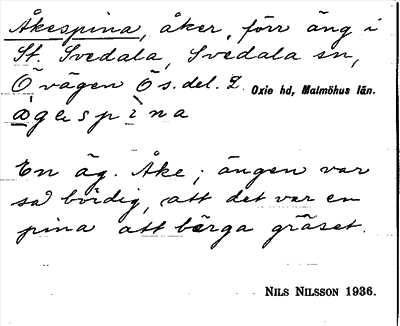 Åkespina, åker, förr äng i
St. Svedala, Svedala sn,
Ö vägen Ö s. del. 2. Oxie hd, Malmöhus län.
En äg. Åke; ängen var
så bördig, att det var en
pina att bärga gräset.
NILS NILSSON 1936.